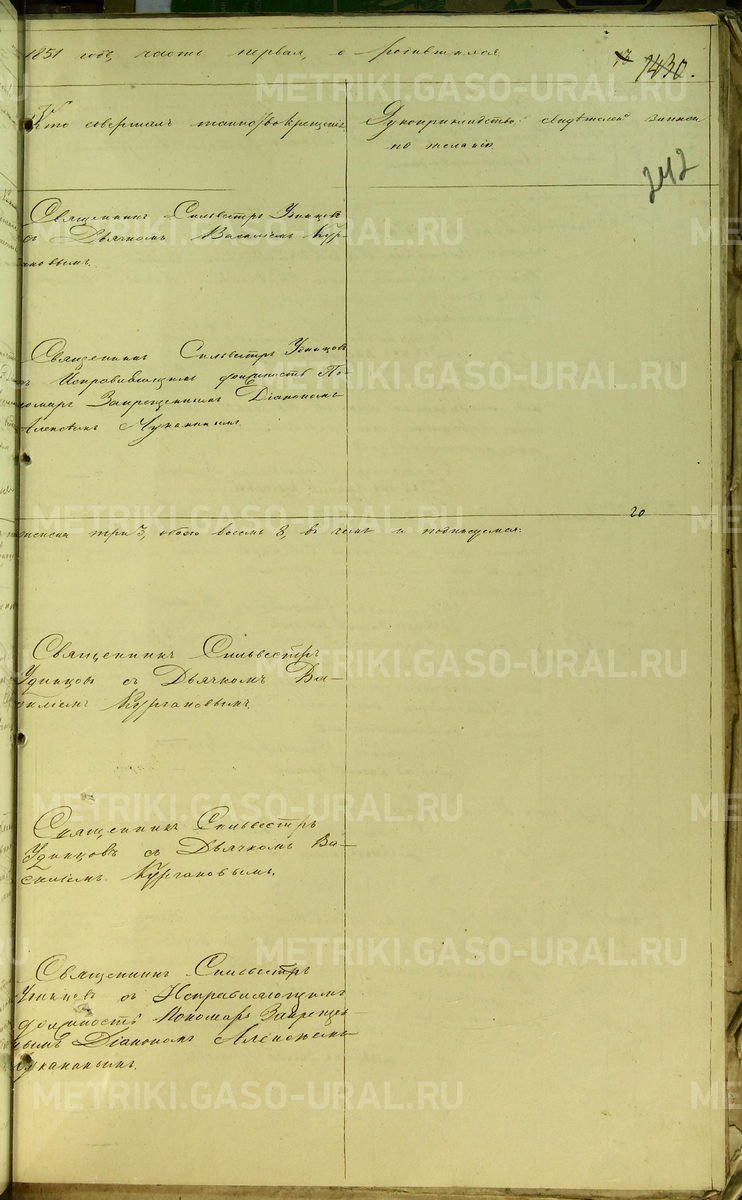 1851 годъ, часть первая, о родившихся.
1430.
242
Кто совершалъ таинство крещенія
Рукоприкладство свидѣтелей записи
по желанію
Священникъ Сильвестръ Удинцовъ
съ Дьячкомъ Василіемъ Кур-
гановымъ.
Священникъ Сильвестръ Удинцовъ
съ Исправляющимъ должность По-
номаря Запрещеннымъ Діакономъ
Алексѣемъ
20
женска три 3, обоего восемь 8, въ чемъ и подписуемся:
Священникъ Сильвестръ
Удинцовъ съ Дьячкомъ Ва-
силіемъ Кургановымъ.
Священникъ Сильвестръ
Удинцовъ съ Дьячкомъ Ва-
силіемъ Кургановымъ.
Священникъ Сильвестръ
Удинцовъ съ Исправляющимъ
должность Пономаря Запрещен-
нымъ Діакономъ Алексѣемъ
METRIKI.GASO-URAL.RU